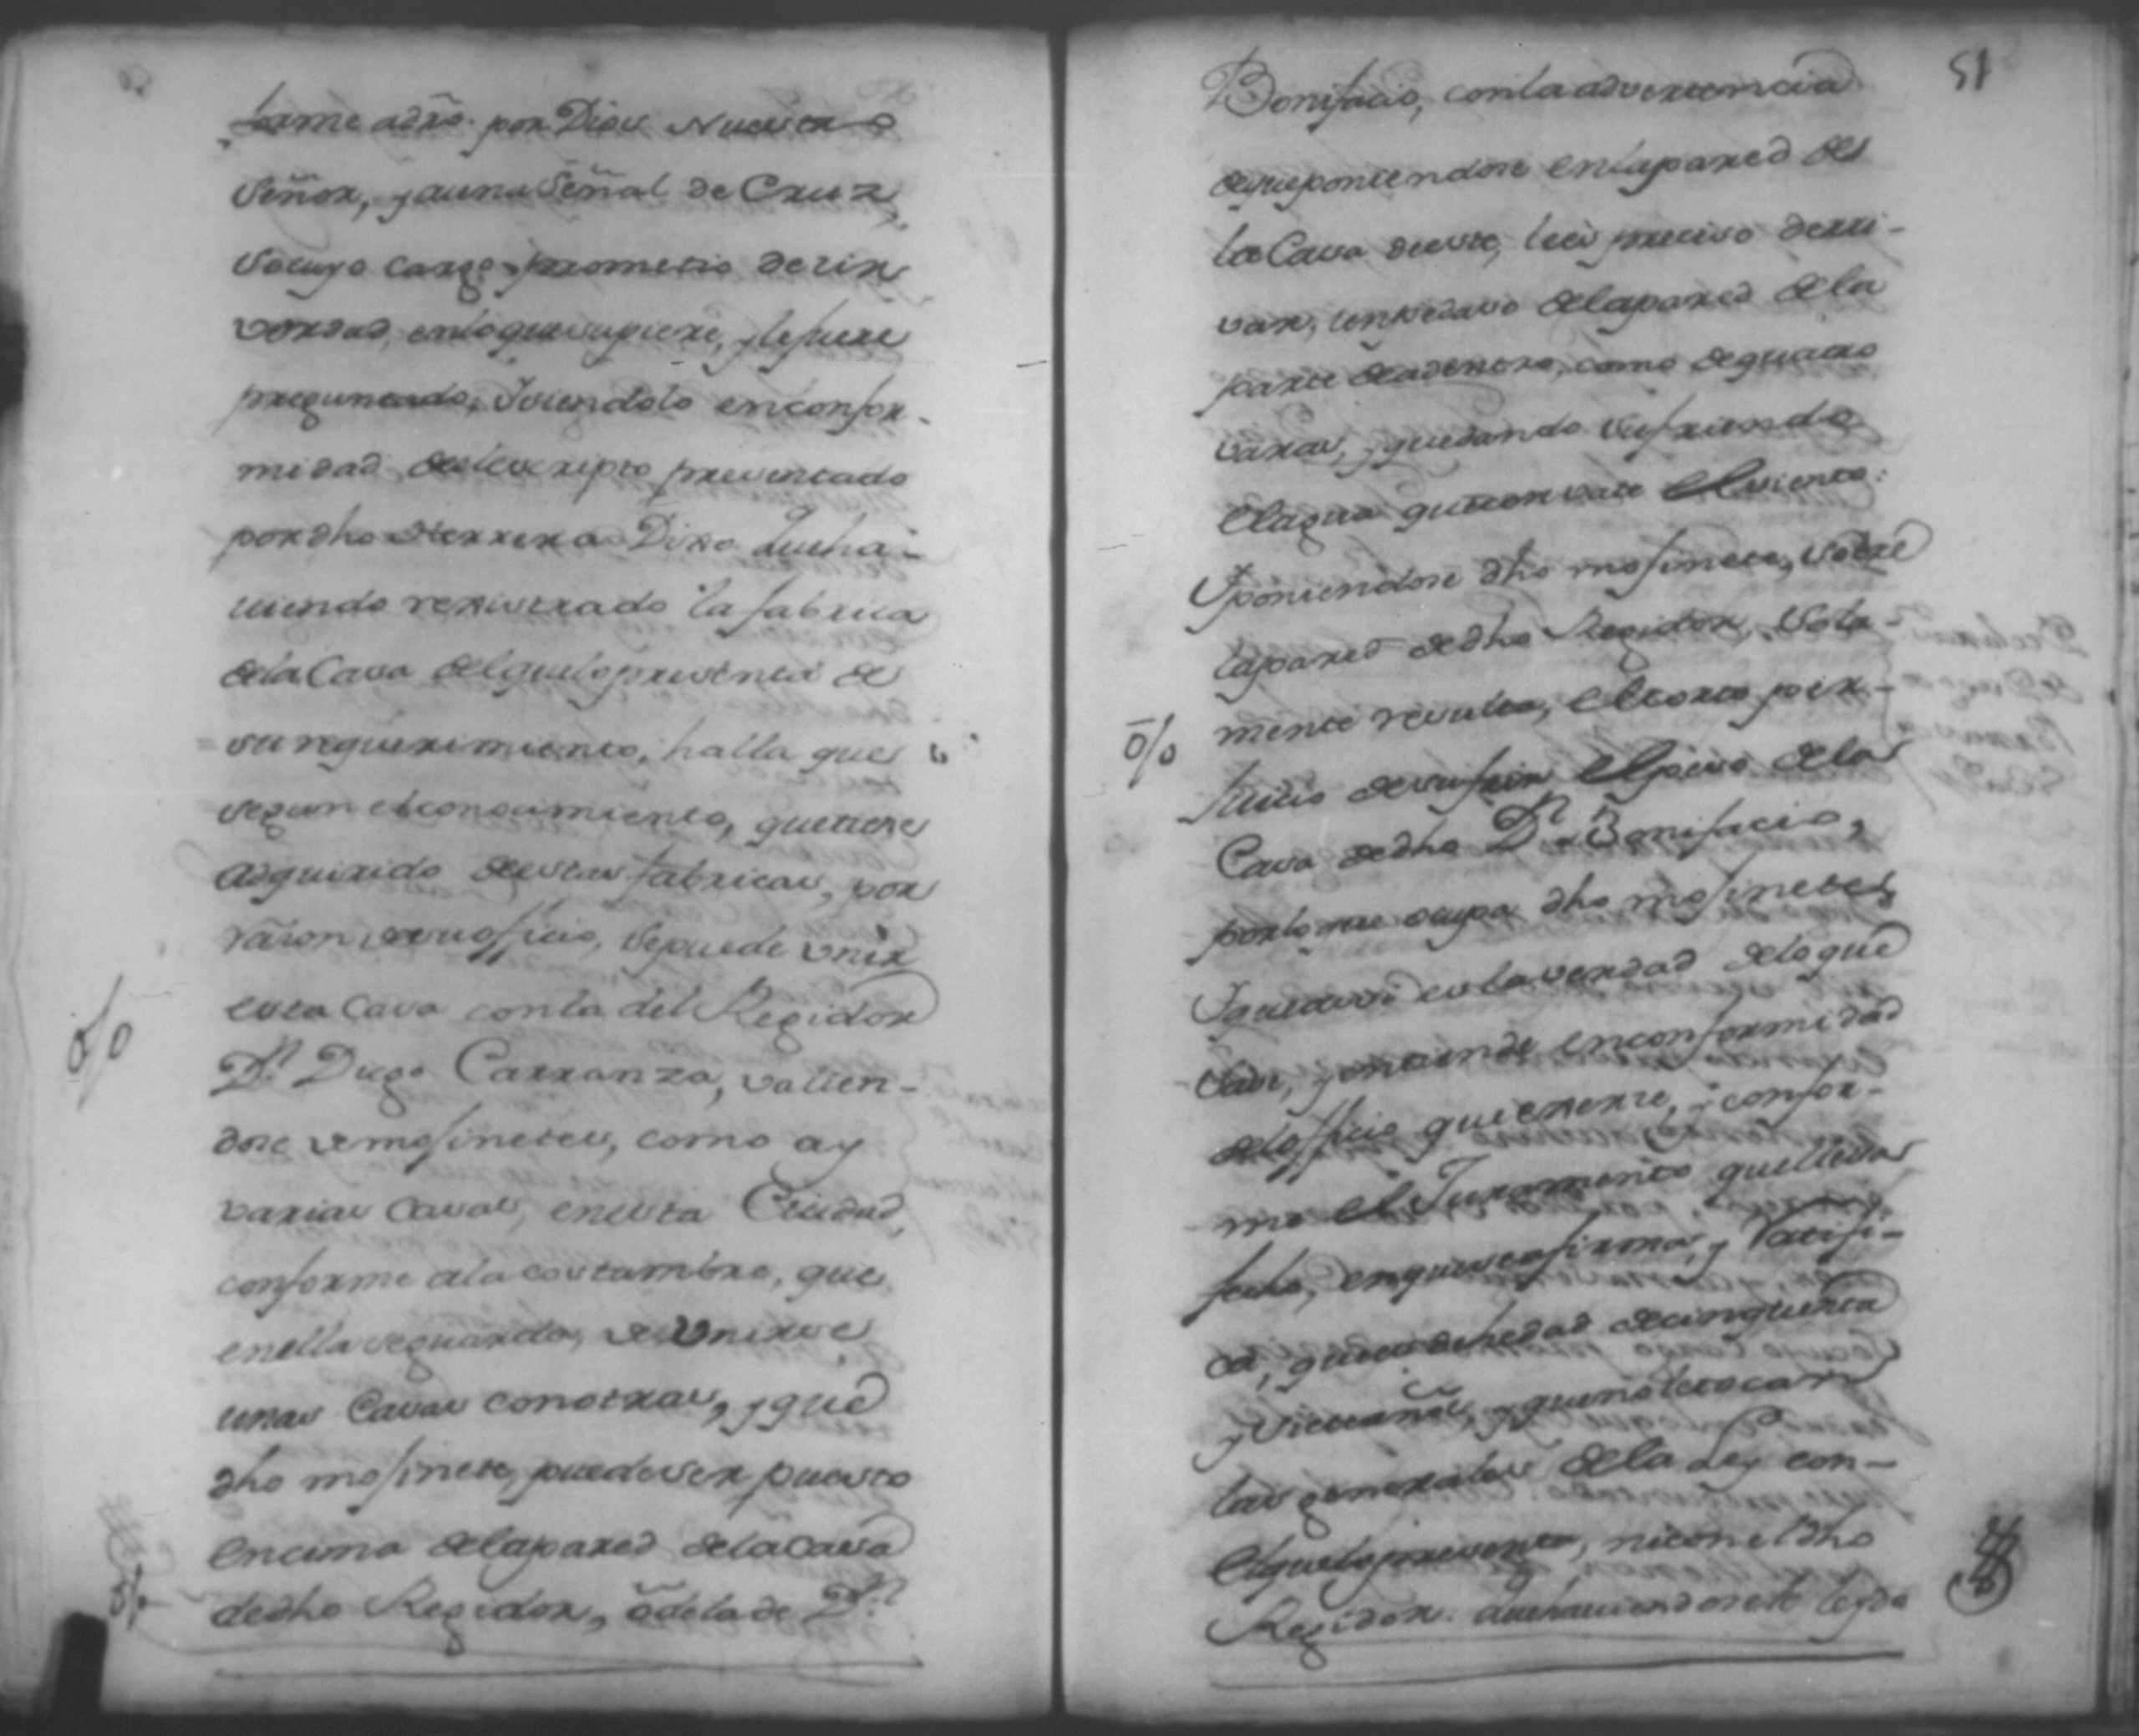 forme a dro. por Dios Nuestro
Señor, y auna Señal de Cruz
so cuyo cargo prometio decir
verdad, enloque supiere, y lefuere
preguntado, Isiendolo enconfor-
midad delescripto presentado
pordho Herrera Dixo Queha-
viendo rexistrado la fabrica
dela Casa delquelopresenta de
su requerimiento, halla que
segun elconocimiento, quetiene
adquirido deestas fabricas, por
rason desuofficio, sepuede vnir
esta Casa conla del Regidor
Dn. Diego Carranza, valien-
dose de mojinetes, como ay
varias Casas, enesta Ciudad,
conforme ala costumbre, que
enella seguarda, de Vnirse
unas Casas conotras, y que
dho mojinete, puedeser puesto
encima delapared dela Casa
dedho Regidor, o delade Dn.
51
Bonifacio, conlaadvertencia
dequeponiendose enlapared de
la Casa deeste, lees preciso derri-
var, unpedaso delapared dela
parte deadentro, como dequatro
varas, y quedando sufriendo
elagua queconvate elviento:
Yponiendose dho mojinete, sobre
lapared dedho Regidor, sola-
mente resulta, elcorto per-
juicio desufrir elpeso dela
Casa dedho Dn. Bonifacio,
porloque ocupa dho mojinete,
Yqueesto eslaverdad deloque
save, y entiende enconformidad
delofficio queexerse, y confor-
me el Juramento quelleva
fecho, enqueseafirma, y Ratifi-
ca, quees dehedad decinquenta
y seis años, y quenoletocan
las generales dela Ley con-
elquelopresenta, niconeldho
Regidor. Quehaviendosele leydo